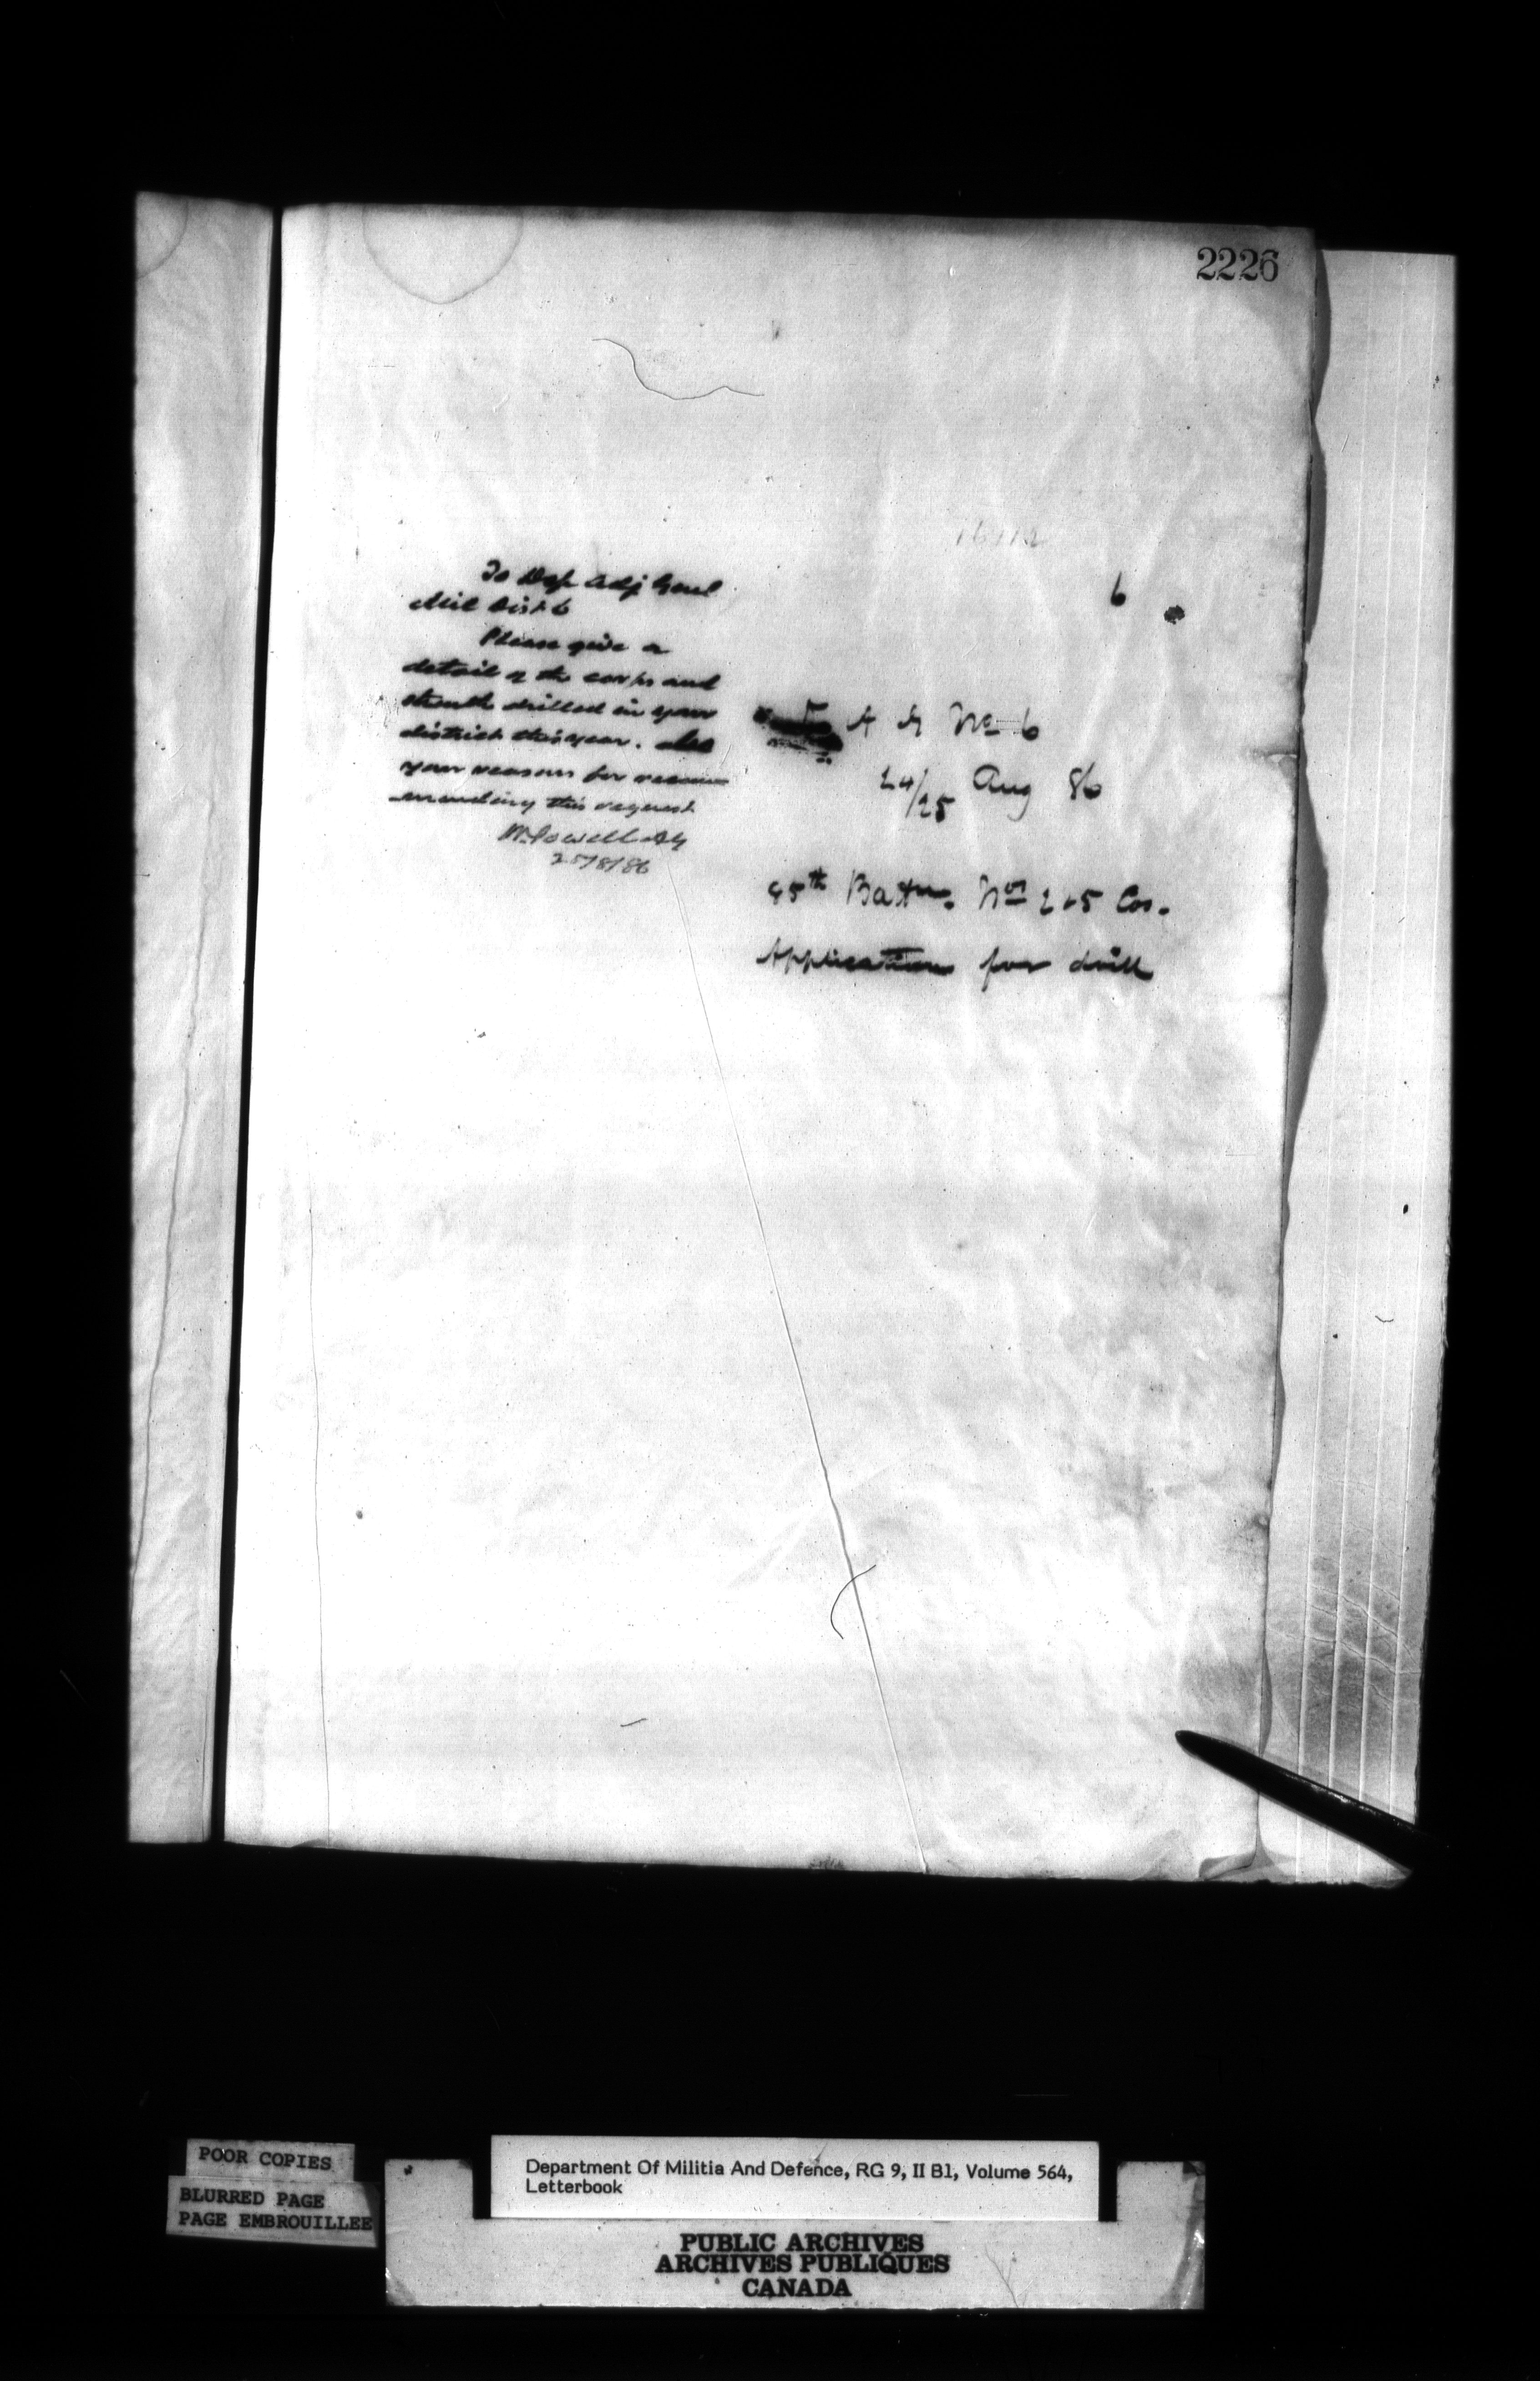 2226
6
To Dep Adj Genl
Mil Dist 6
Please give a
detail of the corps and
drilled in your
district this year. also
your reasons for recom-
-mending this request
W. Powell AG
25/8/86
A G No 6
24/25 Aug 86
85th Battn. Nos 2 & 5 Cos.
Application for drill
POOR COPIES
BLURRED PAGE
PAGE EMBROUILLEE
Department Of Militia And Defence, RG 9, II B1, Volume 564,
Letterbook
PUBLIC ARCHIVES
ARCHIVES PUBLIQUES
CANADA